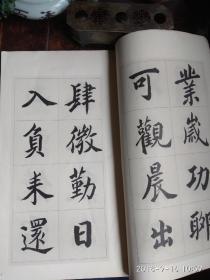 業歲功聊
可觀晨出
肆微勤日
入負耒還
2018-9-14 10:07